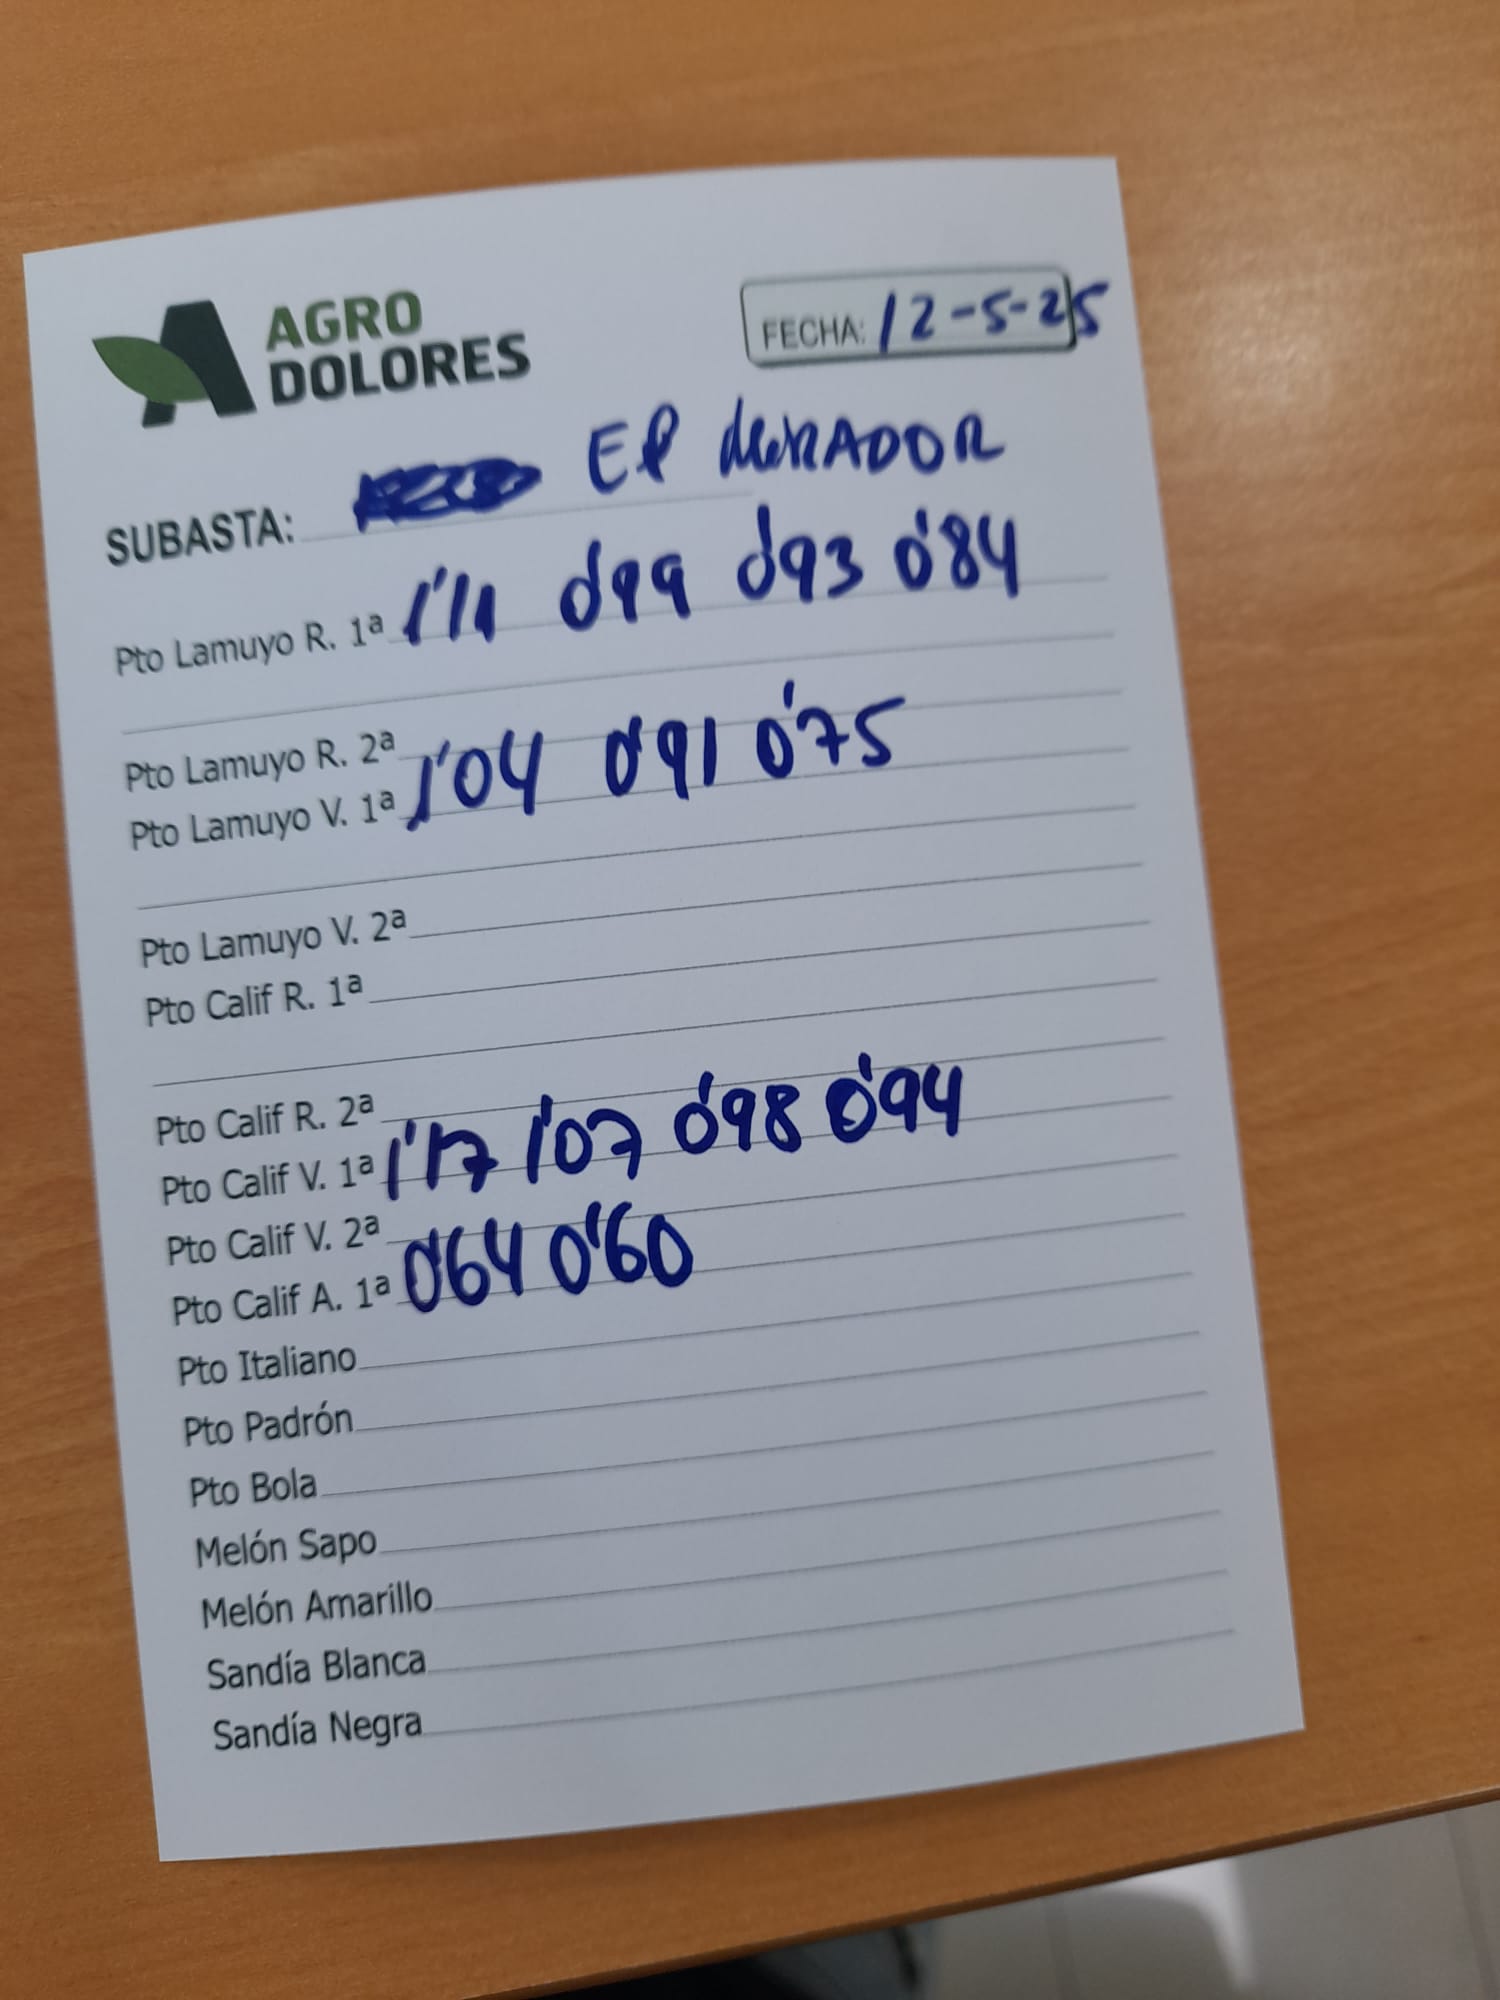 AGRO
DOLORES
FECHA: 12-5-25
SUBASTA: El MIRADOR
Pto Lamuyo R. 1ª 1'11 0'99 0'93 0'84
Pto Lamuyo R. 2ª
Pto Lamuyo V. 1ª 1'04 0'91 0'75
Pto Lamuyo V. 2ª
Pto Calif R. 1ª
Pto Calif R. 2ª
Pto Calif V. 1ª 1'17 1'07 0'98 0'94
Pto Calif V. 2ª
Pto Calif A. 1ª 0'64 0'60
Pto Italiano
Pto Padrón
Pto Bola
Melón Sapo
Melón Amarillo
Sandía Blanca
Sandía Negra